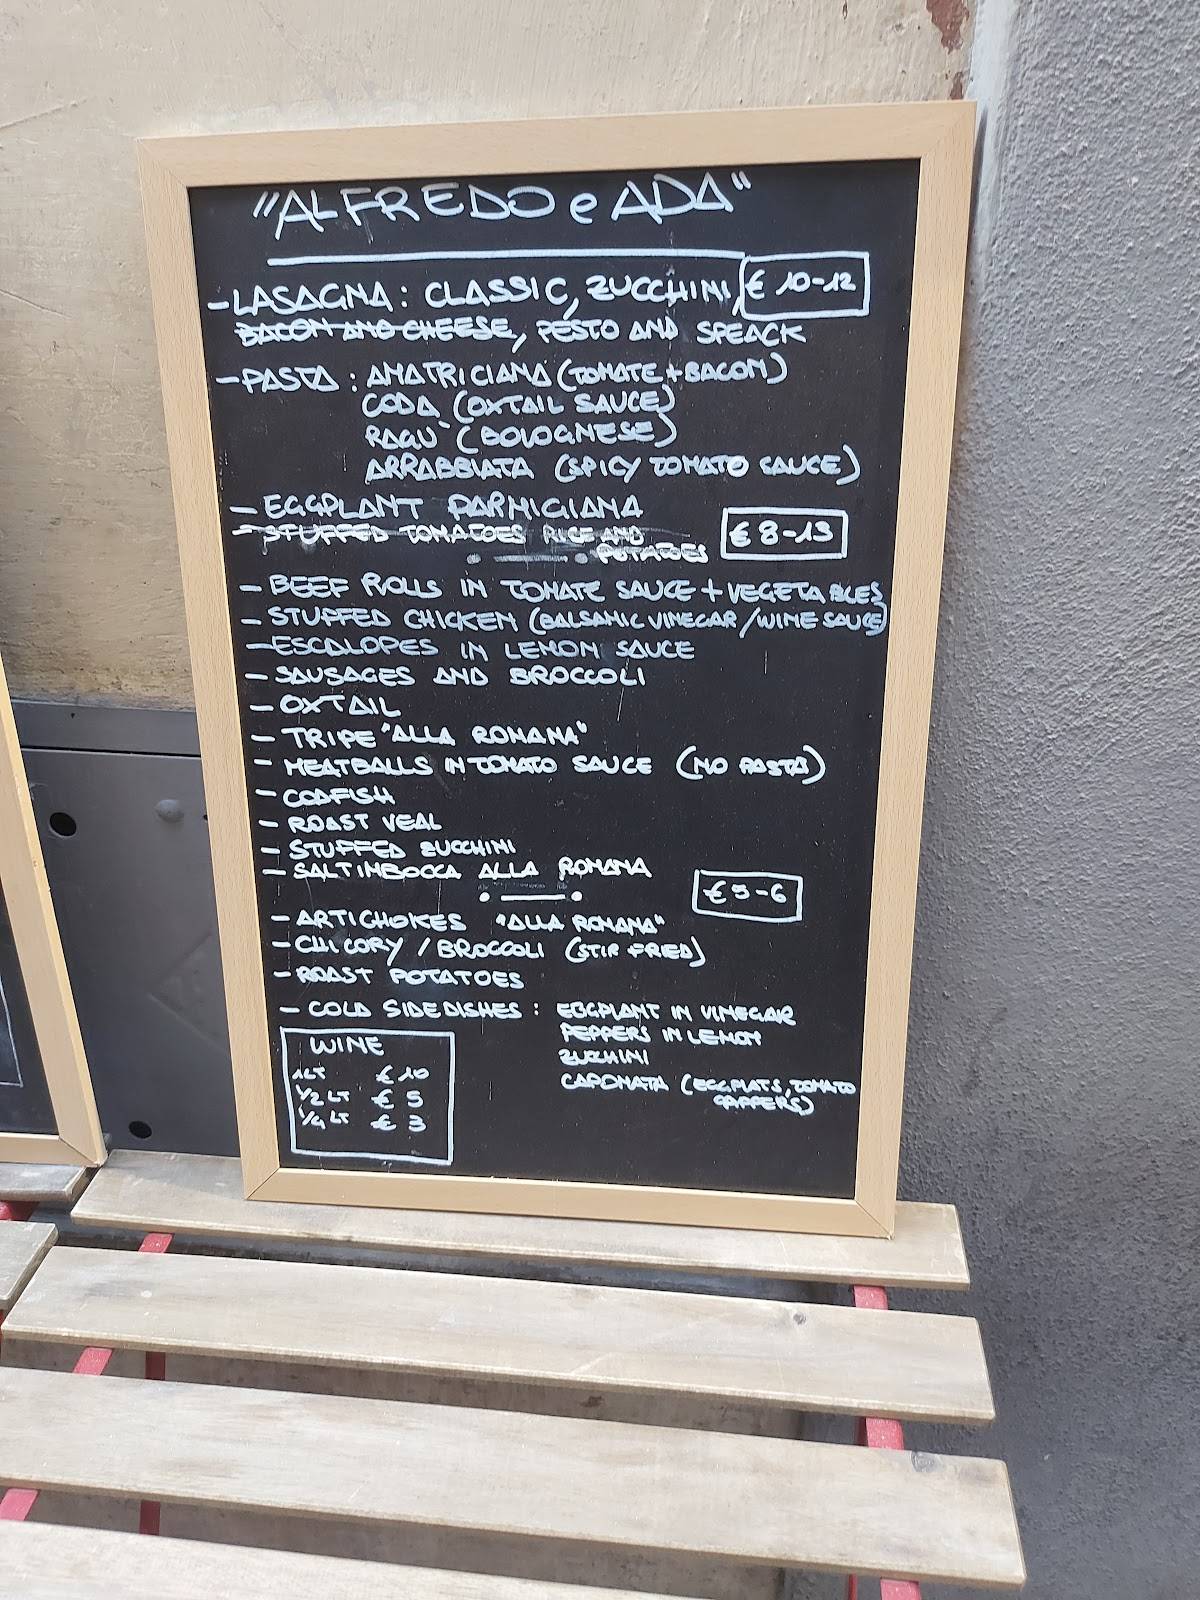 "ALFREDO e ADA"
- LASAGNA: CLASSIC, ZUCCHINI, € 10-12
BACON AND CHEESE, PESTO AND SPEACK
- PASTA: AMATRICIANA (TOMATE + BACON)
CODA (OXTAIL SAUCE)
RAGU` (BOLOGNESE)
ARRABBIATA (SPICY TOMATO SAUCE)
- EGGPLANT PARMIGIANA
- STUFFED TOMATOES RICE AND
POTATOES
€ 8-13
- BEEF ROLLS IN TOMATE SAUCE + VEGETABLES
- STUFFED CHICKEN (BALSAMIC VINEGAR / WINE SAUCE)
- ESCALOPES IN LEMON SAUCE
- SAUSAGES AND BROCCOLI
- OXTAIL
- TRIPE "ALLA ROMANA"
- MEATBALLS IN TOMATO SAUCE (NO PASTA)
- CODFISH
- ROAST VEAL
- STUFFED ZUCCHINI
- SALTIMBOCCA ALLA ROMANA
€ 5-6
- ARTICHOKES "ALLA ROMANA"
- CHICORY / BROCCOLI (STIR FRIED)
- ROAST POTATOES
- COLD SIDEDISHES: EGGPLANT IN VINEGAR
PEPPERS IN LEMON
ZUCCHINI
CAPONATA (EGGPLATS, TOMATO
PEPPERS)
WINE
1 LT € 10
1/2 LT € 5
1/4 LT € 3